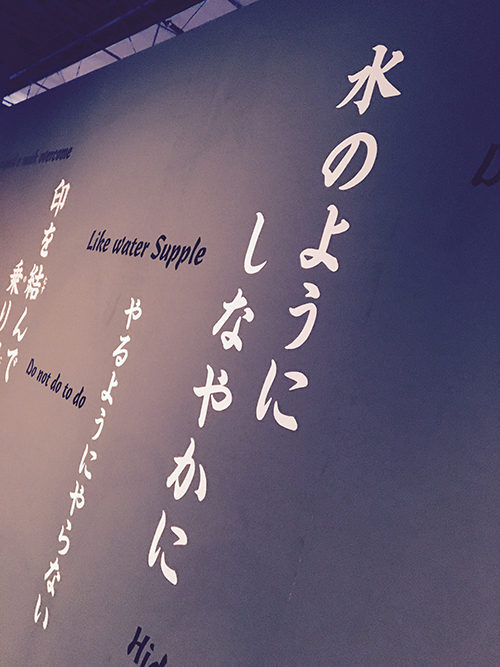 水のように
しなやかに
Like water Supple
やるようにやらない
Do not do to do
印を結んで
乗り
overcome